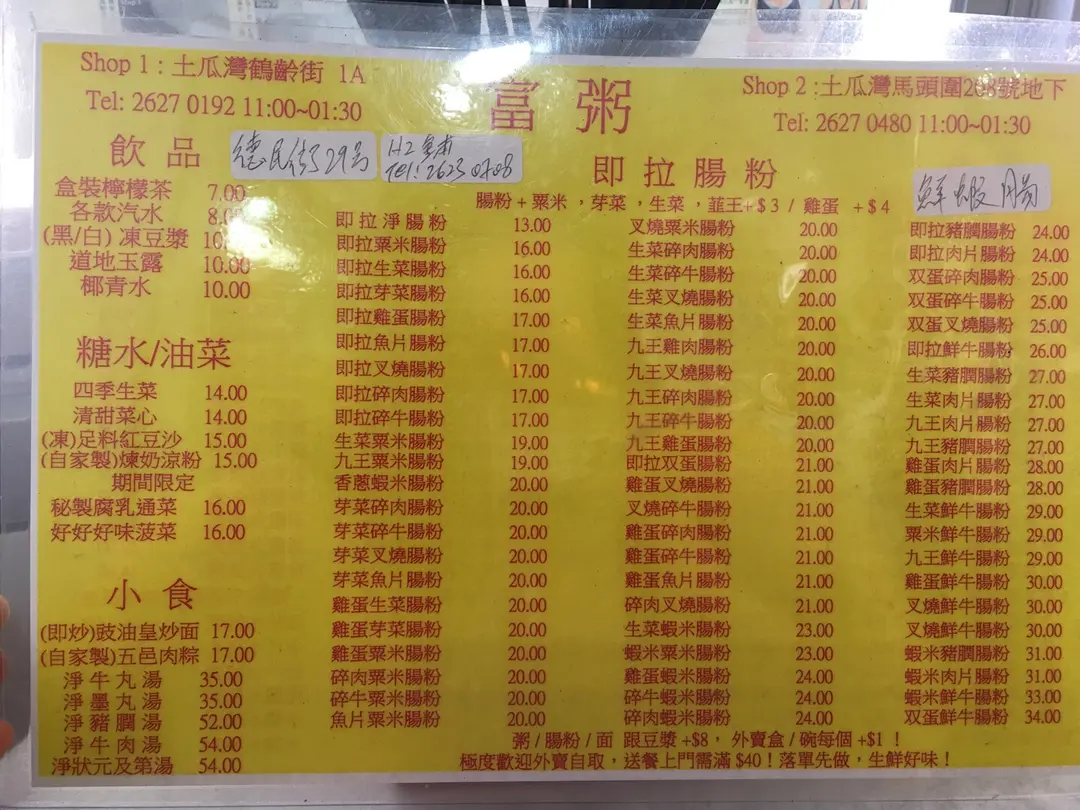 Shop 1 : 土瓜灣鶴齡街 1A
Tel: 2627 0192 11:00~01:30
富 粥
Shop 2 :土瓜灣馬頭圍208號地下
Tel: 2627 0480 11:00~01:30
飲 品
德民街29号
H2
Tel: 2623 0708
盒裝檸檬茶 7.00
各款汽水 8.00
(黑/白) 凍豆漿
道地玉露 10.00
椰青水 10.00
糖水/油菜
四季生菜 14.00
清甜菜心 14.00
(凍)足料紅豆沙 15.00
(自家製)煉奶涼粉 15.00
期間限定
秘製腐乳通菜 16.00
好好好味菠菜 16.00
小 食
(即炒)豉油皇炒面 17.00
(自家製)五邑肉粽 17.00
淨 牛 丸 湯 35.00
淨 墨 丸 湯 35.00
淨 豬 膶 湯 52.00
淨 牛 肉 湯 54.00
淨狀元及第湯 54.00
即 拉 腸 粉
鮮蝦腸
腸粉 + 粟米 ，芽菜 ，生菜 ，韮王+＄3 / 雞蛋 +＄4
即 拉 淨 腸 粉 13.00
即拉粟米腸粉 16.00
即拉生菜腸粉 16.00
即拉芽菜腸粉 16.00
即拉雞蛋腸粉 17.00
即拉魚片腸粉 17.00
即拉叉燒腸粉 17.00
即拉碎肉腸粉 17.00
即拉碎牛腸粉 17.00
生菜粟米腸粉 19.00
九王粟米腸粉 19.00
香蔥蝦米腸粉 20.00
芽菜碎肉腸粉 20.00
芽菜碎牛腸粉 20.00
芽菜叉燒腸粉 20.00
芽菜魚片腸粉 20.00
雞蛋生菜腸粉 20.00
雞蛋芽菜腸粉 20.00
雞蛋粟米腸粉 20.00
碎肉粟米腸粉 20.00
碎牛粟米腸粉 20.00
魚片粟米腸粉 20.00
叉燒粟米腸粉 20.00
生菜碎肉腸粉 20.00
生菜碎牛腸粉 20.00
生菜叉燒腸粉 20.00
生菜魚片腸粉 20.00
九王雞肉腸粉 20.00
九王叉燒腸粉 20.00
九王碎肉腸粉 20.00
九王碎牛腸粉 20.00
九王雞蛋腸粉 20.00
即拉双蛋腸粉 21.00
雞蛋叉燒腸粉 21.00
叉燒碎牛腸粉 21.00
雞蛋碎肉腸粉 21.00
雞蛋碎牛腸粉 21.00
雞蛋魚片腸粉 21.00
碎肉叉燒腸粉 21.00
生菜蝦米腸粉 23.00
蝦米粟米腸粉 23.00
雞蛋蝦米腸粉 24.00
碎牛蝦米腸粉 24.00
碎肉蝦米腸粉 24.00
即拉豬膶腸粉 24.00
即拉肉片腸粉 24.00
双蛋碎肉腸粉 25.00
双蛋碎牛腸粉 25.00
双蛋叉燒腸粉 25.00
即拉鮮牛腸粉 26.00
生菜豬膶腸粉 27.00
生菜肉片腸粉 27.00
九王肉片腸粉 27.00
九王豬膶腸粉 27.00
雞蛋肉片腸粉 28.00
雞蛋豬膶腸粉 28.00
生菜鮮牛腸粉 29.00
粟米鮮牛腸粉 29.00
九王鮮牛腸粉 29.00
雞蛋鮮牛腸粉 30.00
叉燒鮮牛腸粉 30.00
叉燒鮮牛腸粉 30.00
蝦米豬膶腸粉 31.00
蝦米肉片腸粉 31.00
蝦米鮮牛腸粉 33.00
双蛋鮮牛腸粉 34.00
粥 / 腸粉 / 面 跟豆漿 +$8， 外賣盒 / 碗每個 +$1！
極度歡迎外賣自取，送餐上門需滿 $40！落單先做，生鮮好味！